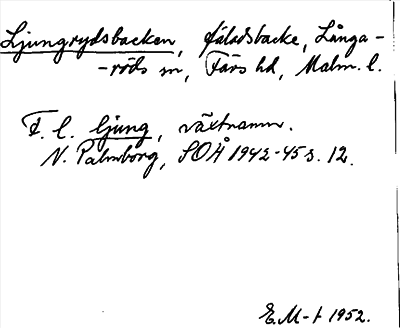 Ljungrydsbacken, fäladsbacke, Långa-
-röds sn, Färs hd, Malm. l.
F. l. ljung, växtnamn.
N. Palmborg, SOÅ 1942-45 s. 12.
E.M-t 1952.